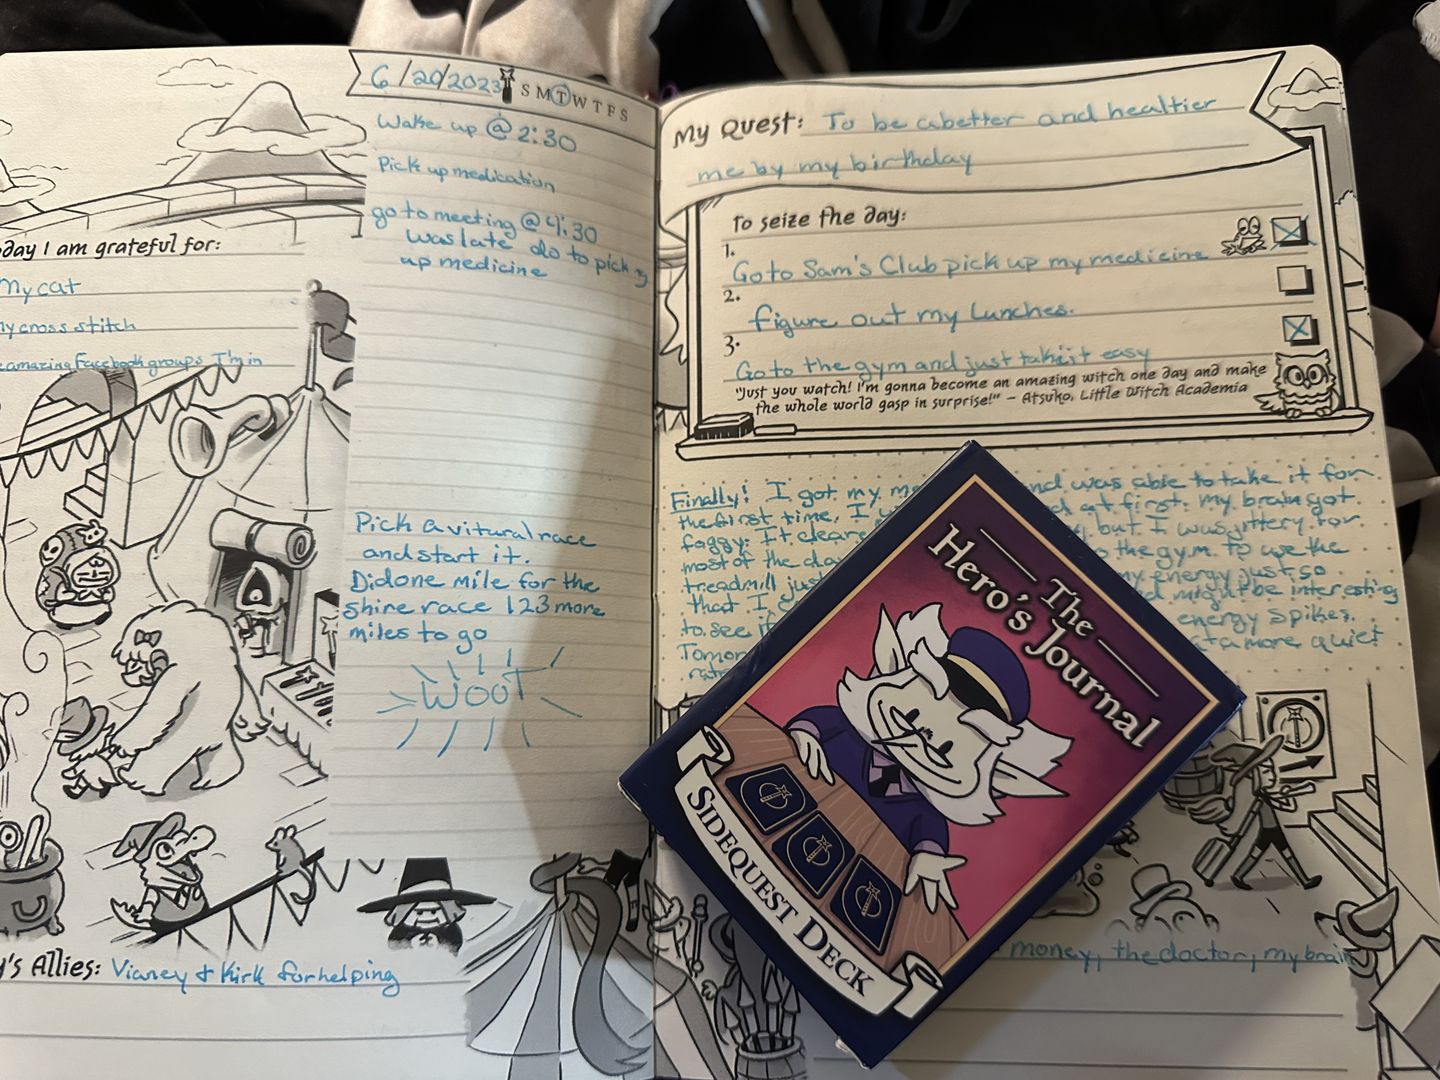 6/20/2023 S M T W T F S
Wake up @ 2:30
Pick up medication
go to meeting @ 4:30
was late do to picking
up medicine
day I am grateful for:
My cat
my cross stitch
amazing Facebook groups I'm in
Pick a vitural race
and start it.
Did one mile for the
shire race 123 more
miles to go
WOOT
's Allies: Vianey & Kirk for helping
My Quest: To be a better and healtier
me by my birthday
To seize the day:
1.
Go to Sam's Club pick up my medicine
2.
figure out my Lunches.
3.
Go to the gym and just take it easy
"Just you watch! I'm gonna become an amazing witch one day and make
the whole world gasp in surprise!" – Atsuko, Little Witch Academia
Finally! I got my me nd was able to take it for
the first time. I d at first. my brain got
foggy. It cleare , but I was jittery for
most of the da the gym to use the
treadmill jus my energy just so
that I might be interesting
to see if energy spikes.
Tomor a more quiet
The
Hero's Journal
Sidequest Deck
money, the doctor, my brain